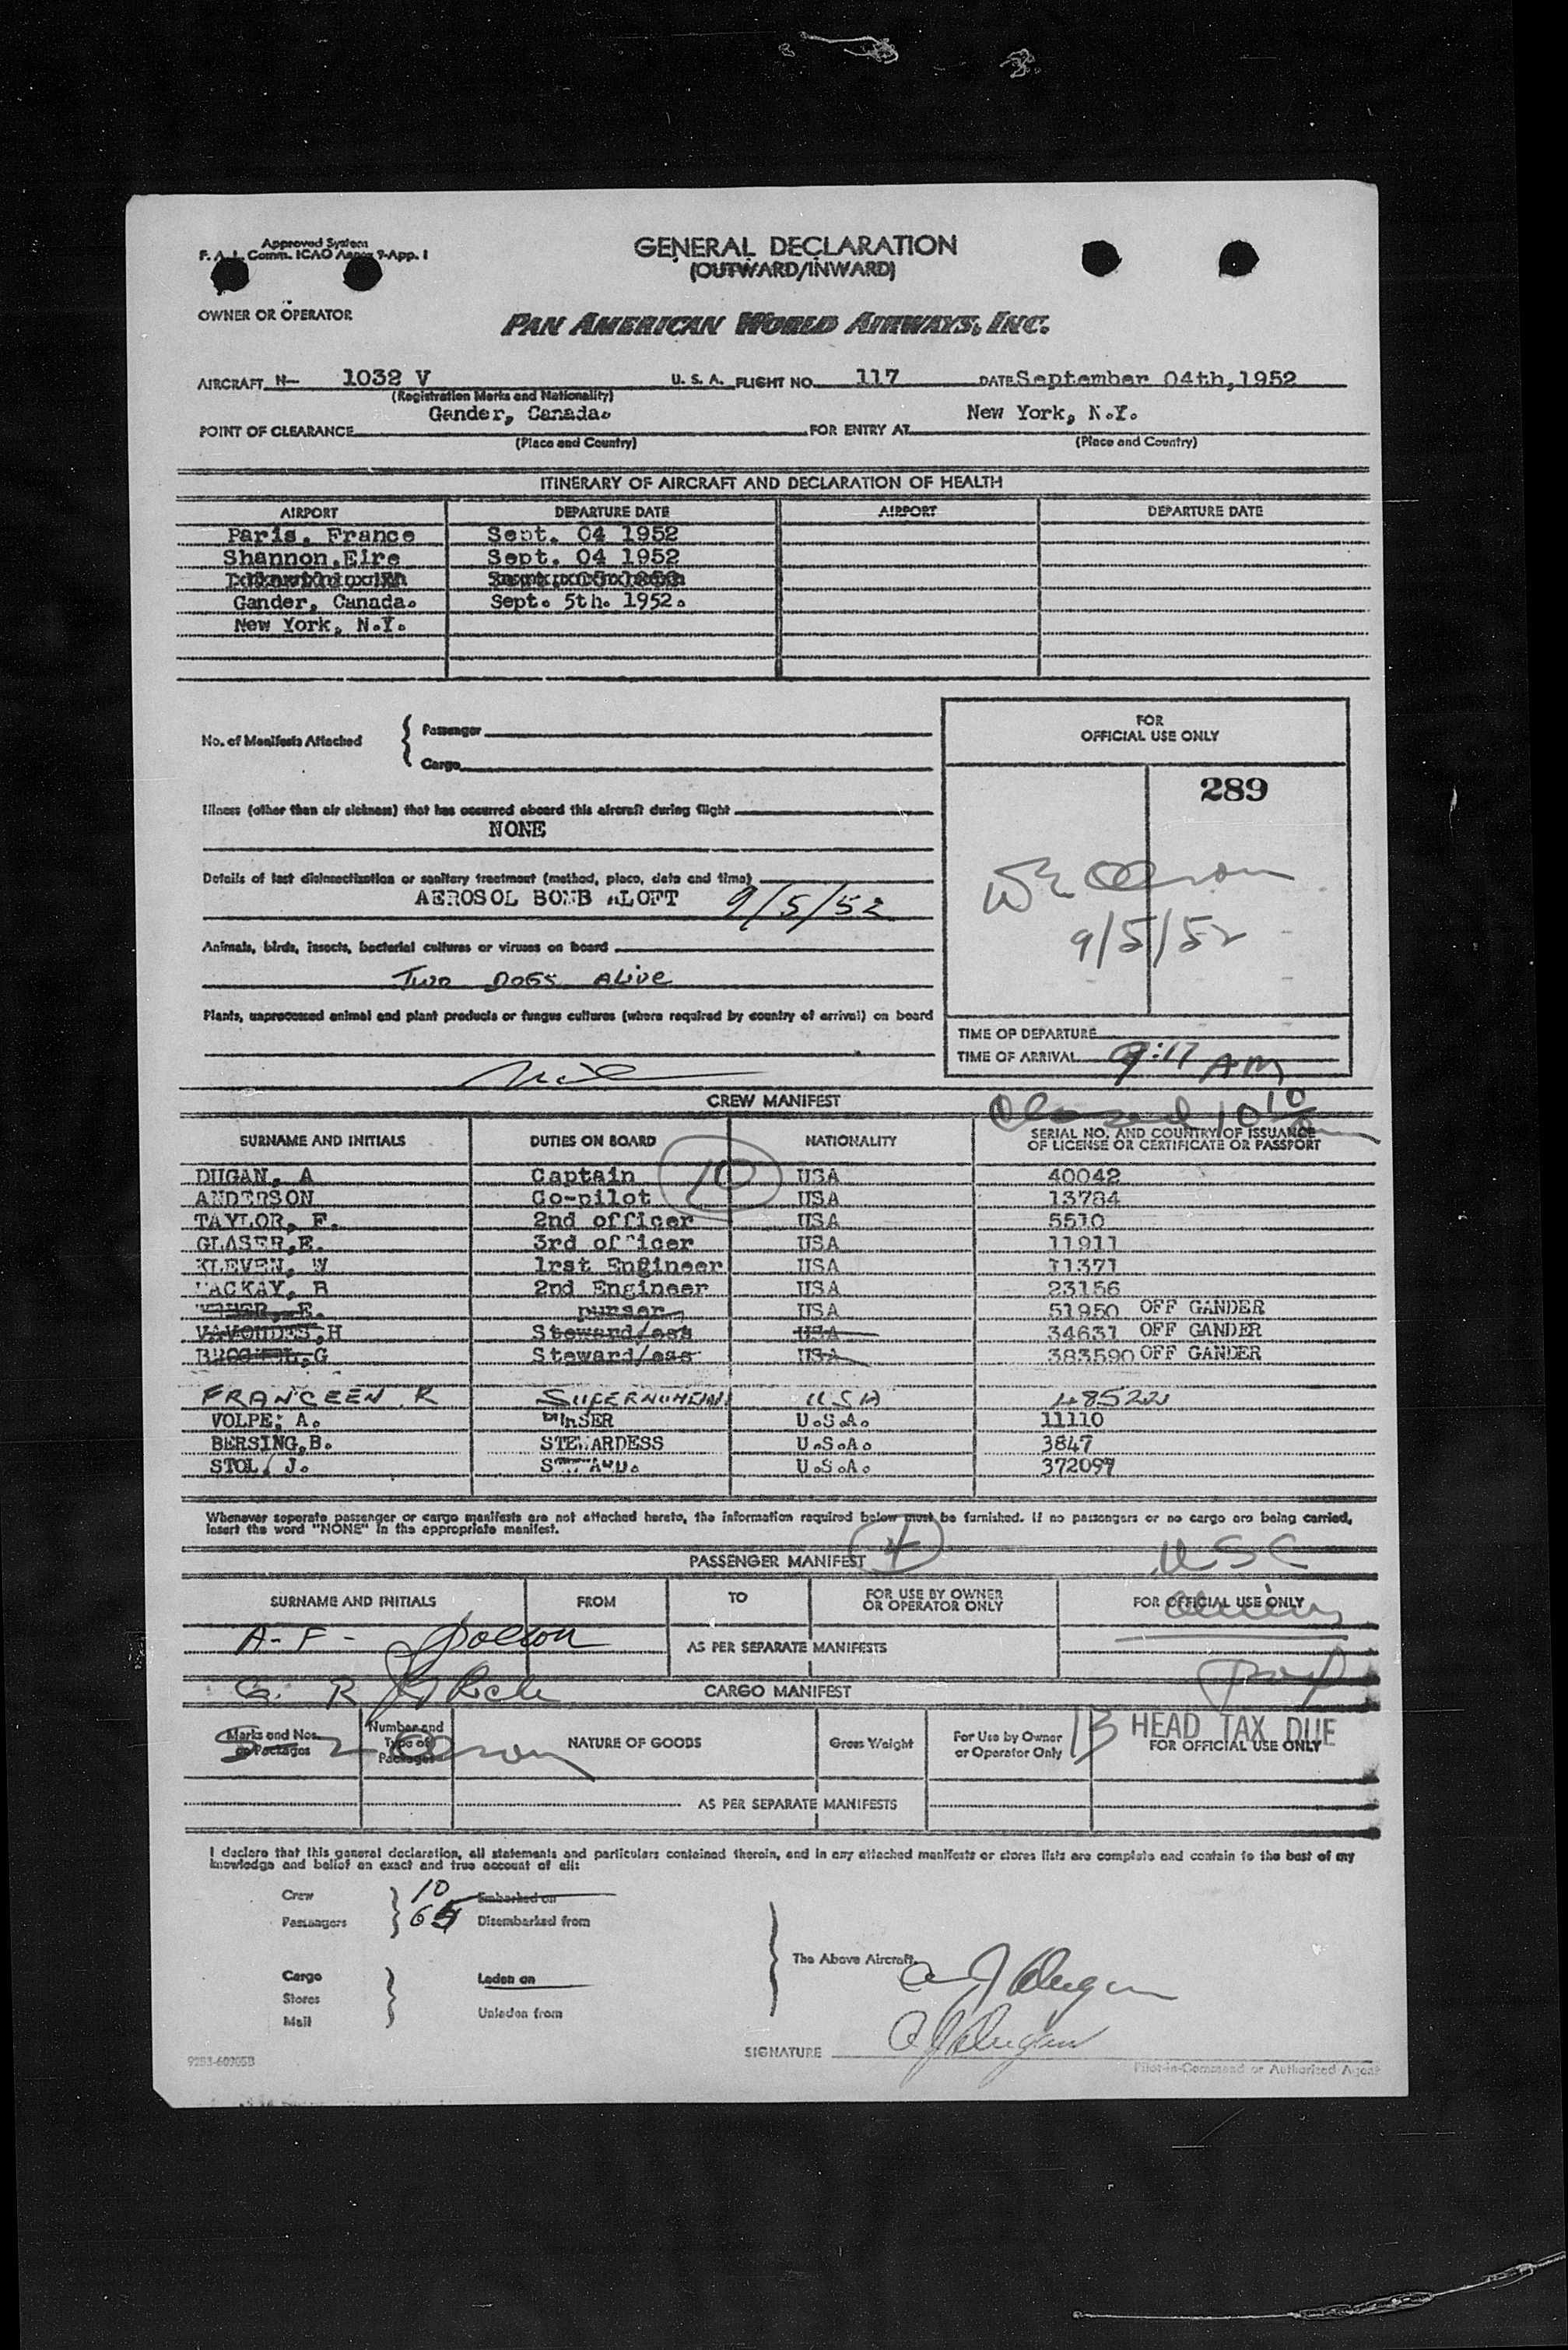 Approved System
F. A. L. Comm. ICAO Annex 9-App. I
GENERAL DECLARATION
(OUTWARD/INWARD)
OWNER OR OPERATOR
PAN AMERICAN WORLD AIRWAYS, INC.
AIRCRAFT N- 1032 V U. S. A. FLIGHT NO. 117 DATE September 04th, 1952
(Registration Marks and Nationality)
Gander, Canada. New York, N.Y.
POINT OF CLEARANCE FOR ENTRY AT
(Place and Country) (Place and Country)
ITINERARY OF AIRCRAFT AND DECLARATION OF HEALTH
AIRPORT DEPARTURE DATE AIRPORT DEPARTURE DATE
Paris, France Sept. 04 1952
Shannon,Eire Sept. 04 1952
Gander, Canada. Sept. 5th. 1952.
New York, N.Y.
No. of Manifests Attached
Passenger
Cargo
FOR
OFFICIAL USE ONLY
289
Illness (other than air sickness) that has occurred aboard this aircraft during flight
NONE
Details of last disinsectization or sanitary treatment (method, place, date and time)
AEROSOL BOMB ALOFT 9/5/52
9/5/52
Animals, birds, insects, bacterial cultures or viruses on board
Two DOGS ALIVE
Plants, unprocessed animal and plant products or fungus cultures (where required by country of arrival) on board
TIME OF DEPARTURE
TIME OF ARRIVAL 9:17 AM
CREW MANIFEST
SURNAME AND INITIALS DUTIES ON BOARD NATIONALITY SERIAL NO. AND COUNTRY OF ISSUANCE
OF LICENSE OR CERTIFICATE OR PASSPORT
10
DUGAN, A Captain USA 40042
ANDERSON Co-pilot USA 13784
TAYLOR, F. 2nd officer USA 5510
GLASER,E. 3rd officer USA 11911
KLEVEN, W 1rst Engineer USA 11371
MACKAY, B 2nd Engineer USA 23156
E. purser USA 51950 OFF GANDER
H Steward/ess USA 34631 OFF GANDER
G Steward/ess USA 383590 OFF GANDER
FRANCEEN R USA 48522
VOLPE; A. PURSER U.S.A. 11110
BERSING,B. STEWARDESS U.S.A. 3847
J. STEWARD. U.S.A. 372097
Whenever separate passenger or cargo manifests are not attached hereto, the information required below must be furnished. If no passengers or no cargo are being carried,
insert the word "NONE" in the appropriate manifest.
PASSENGER MANIFEST USC
SURNAME AND INITIALS FROM TO FOR USE BY OWNER
OR OPERATOR ONLY FOR OFFICIAL USE ONLY
A-F-
AS PER SEPARATE MANIFESTS
CARGO MANIFEST
Marks and Nos.
on Packages Number and
Type of
Packages NATURE OF GOODS Gross Weight For Use by Owner
or Operator Only 13 HEAD TAX DUE
FOR OFFICIAL USE ONLY
AS PER SEPARATE MANIFESTS
I declare that this general declaration, all statements and particulars contained therein, and in any attached manifests or stores lists are complete and contain to the best of my
knowledge and belief an exact and true account of all:
Crew 10 Embarked on
Passengers Disembarked from
The Above Aircraft.
A J Dugan
Cargo Laden on
Stores
Mail Unladen from
SIGNATURE A J Dugan
Pilot-in-Command or Authorized Agent